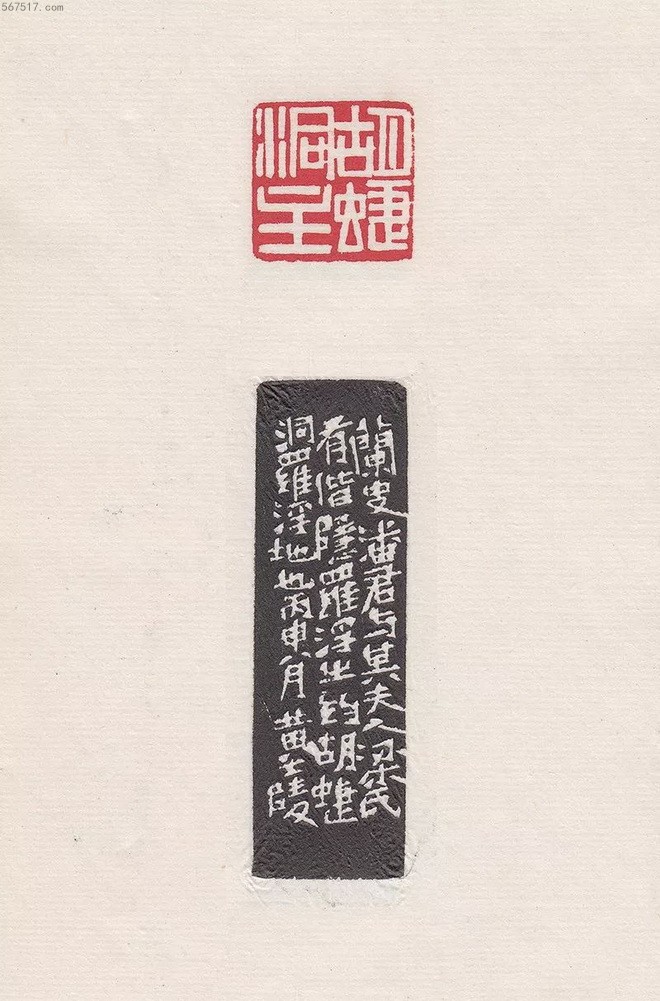 567517.com
胡蜨
洞主
蘭史潘君与其夫人梁氏
有偕隱羅浮之約胡蜨
洞羅浮地也丙申八月黃士陵